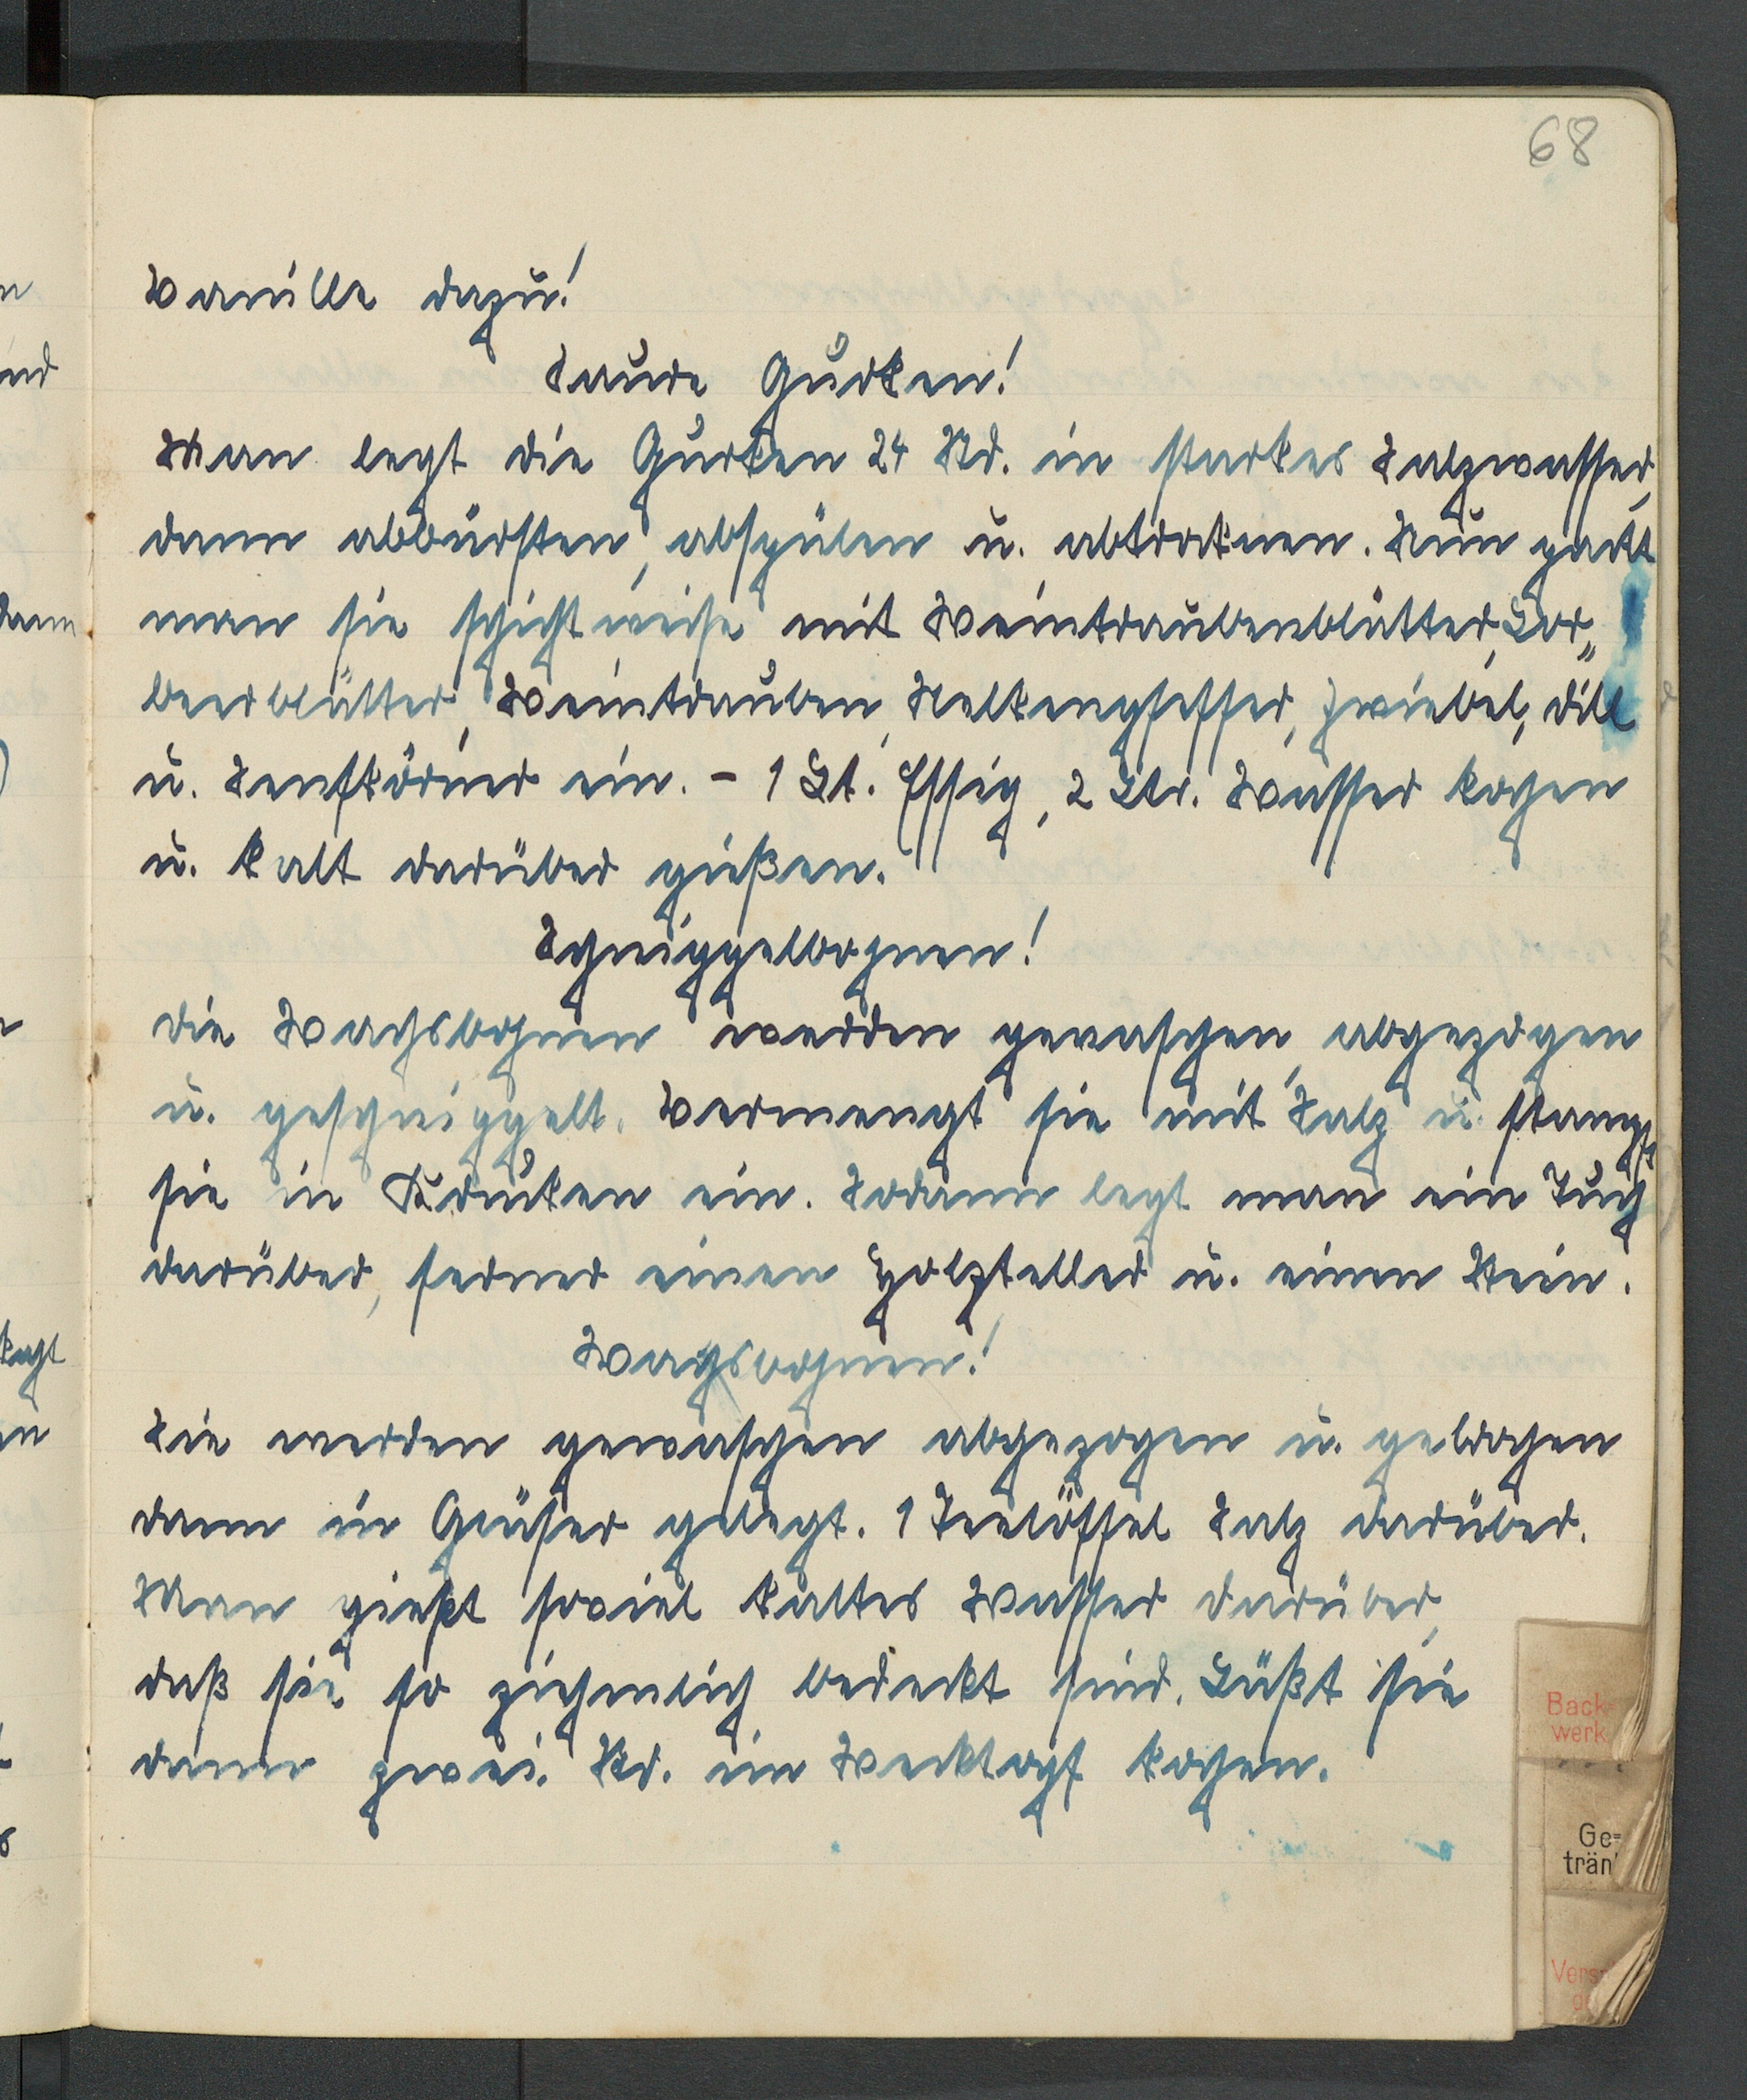 68
Vanille dazu!
Saure Gurken!
Man legt die Gurken 24 Std. in starkes Salzwasser,
dann abbürsten, abspülen u. abtroknen. Nun packt
man sie schichtweise mit Weintraubenblätter, Lor„
beerblätter, Weintrauben, Nelkenpfeffer, Zwiebel, Dill
u. Senfkörner ein. - 1 Lt. Essig, 2 Ltr. Wasser kochen
u. kalt darüber gießen.
Schnippelbohnen!
Die Wachsbohnen werden gewaschen, abgezogen
u. geschnippelt. Vermengt sie mit Salz u. stampft
sie in Kruken ein. Sodann legt man ein Tuch
darüber, ferner einen Holzteller u. einen Stein.
Wachsbohnen!
Sie werden gewaschen abgezogen u. gebrochen
dann in Gläser gelegt. 1 Teelöffel Salz darüber.
Man gießt soviel kaltes Wasser darüber,
daß sie so ziehmlich bedeckt sind. Läßt sie
dann zwei Std. im Wecktopf kochen.
Back-
werk
Ge-
trän
Vers